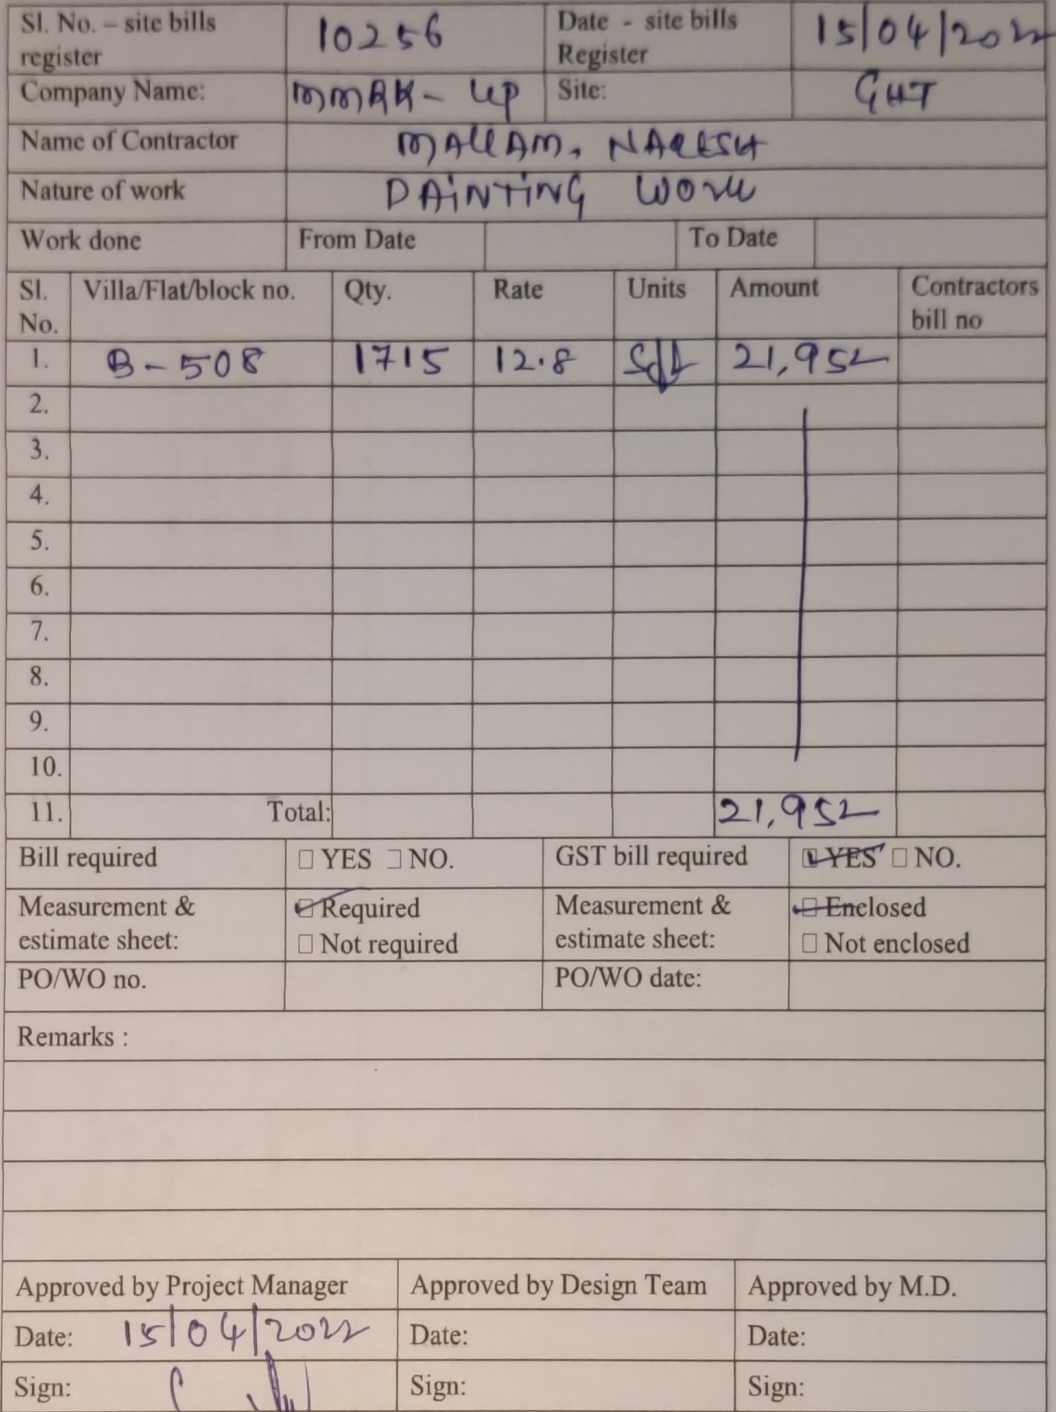 Sl. No. – site bills register 10256 Date - site bills Register 15/04/2022
Company Name: MMRK - Up Site: GHT
Name of Contractor MALLAM. NARESH
Nature of work PAiNTiNG WORK
Work done From Date To Date
Sl. No. Villa/Flat/block no. Qty. Rate Units Amount Contractors bill no
1. B - 508 1715 12.8 Sft 21,952
2.
3.
4.
5.
6.
7.
8.
9.
10.
11. Total: 21,952
Bill required □ YES □ NO. GST bill required ☑ YES □ NO.
Measurement & estimate sheet: ☑ Required □ Not required Measurement & estimate sheet: ☑ Enclosed □ Not enclosed
PO/WO no. PO/WO date:
Remarks :
Approved by Project Manager Approved by Design Team Approved by M.D.
Date: 15/04/2022 Date: Date:
Sign: Sign: Sign: